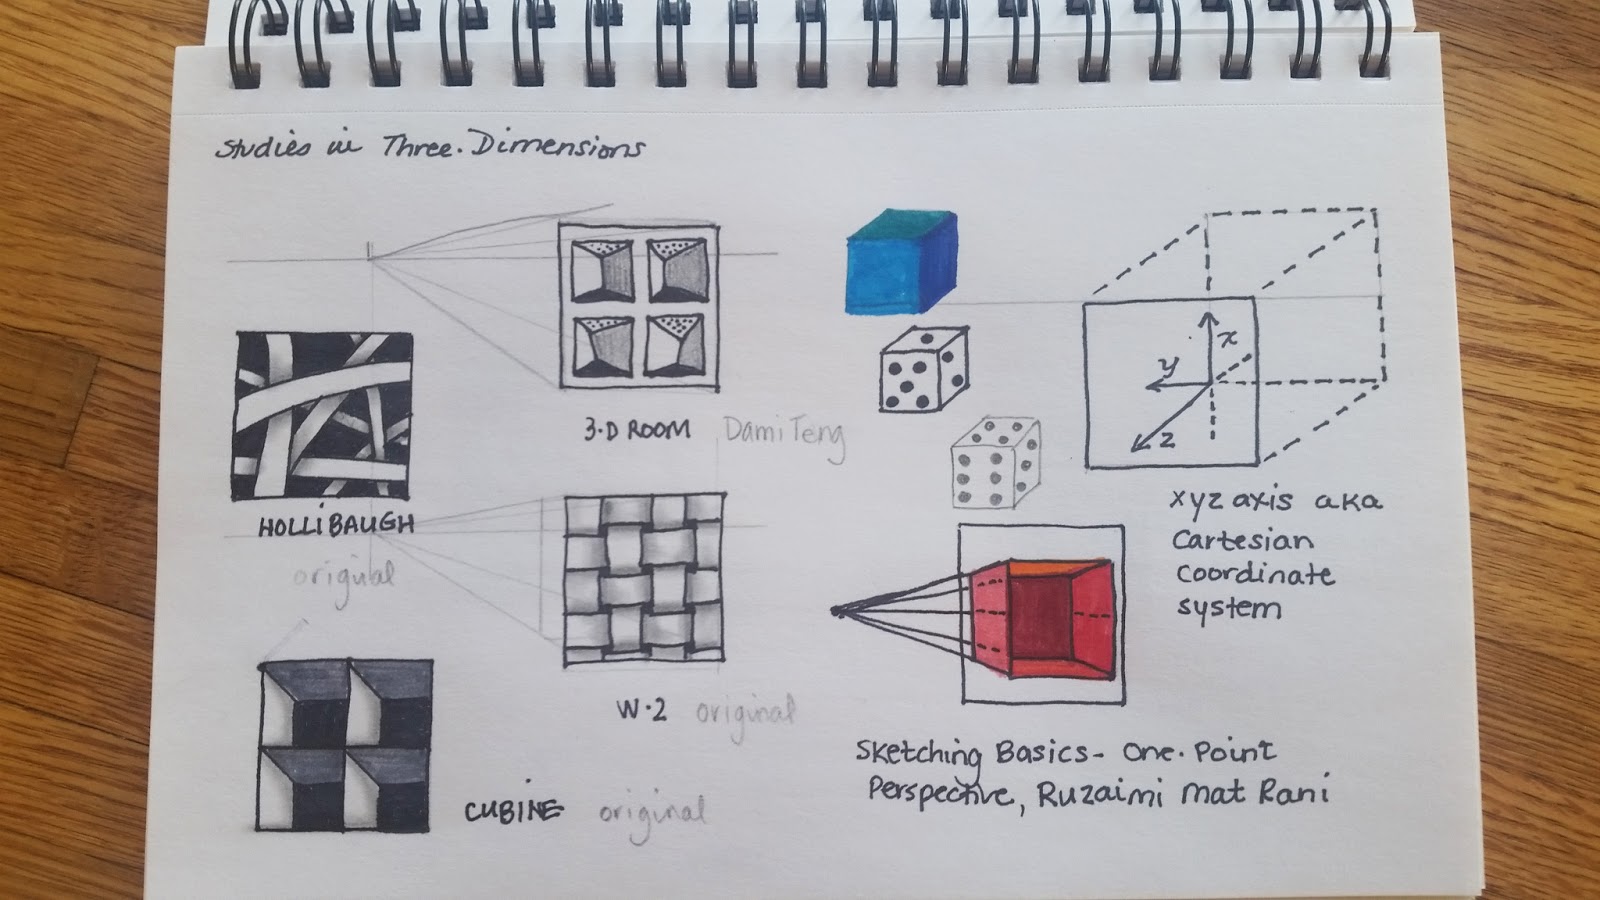 Studies in Three-Dimensions
3-D ROOM DamiTeng
x
y
z
xyz axis aka
Cartesian
coordinate
system
HOLLiBAUGH
original
W-2 original
CUBINE original
Sketching Basics - One-Point
Perspective, Ruzaimi Mat Rani